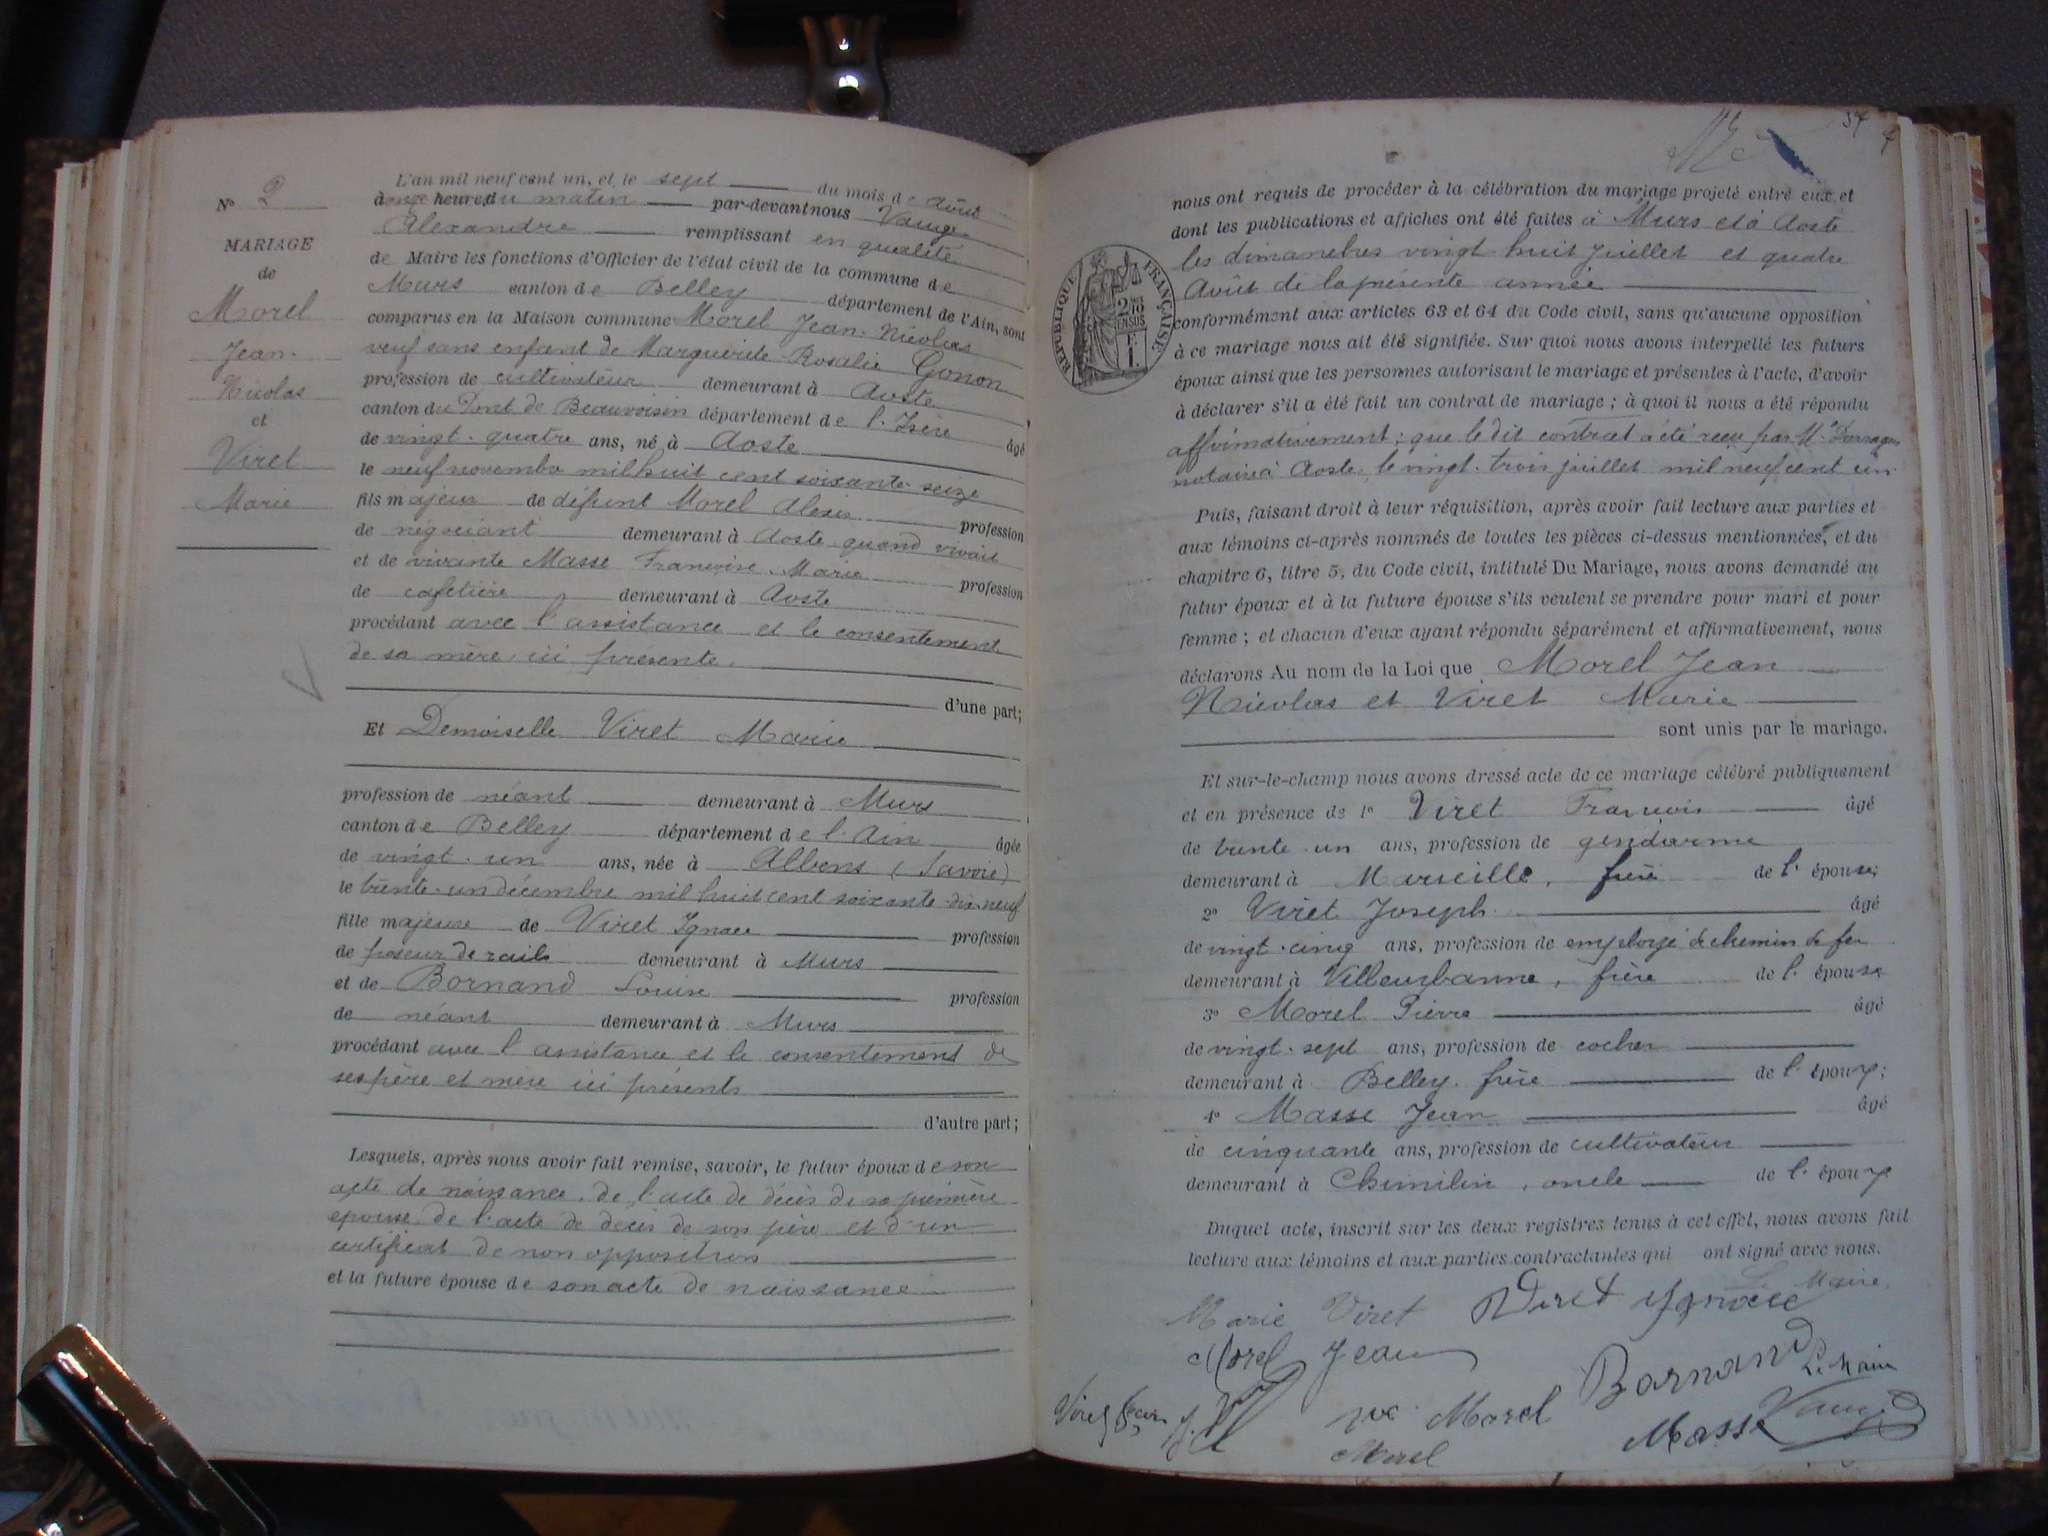 No 2
MARIAGE
de
Morel
Jean-
Nicolas
et
Viret
Marie
L'an mil neuf cent un, et le sept du mois de Août
à onze heures du matin par-devant nous Vauge
Alexandre remplissant en qualité
de Maire les fonctions d'Officier de l'état civil de la commune de
Murs canton de Belley département de l'Ain, sont
comparus en la Maison commune Morel Jean-Nicolas
veuf sans enfant de Marguerite-Rosalie Gonon
profession de cultivateur demeurant à Aoste
canton du Pont de Beauvoisin département de l'Isère âgé
de vingt-quatre ans, né à Aoste
le neuf novembre mil huit cent soixante-seize
fils majeur de défunt Morel Alexis profession
de négociant demeurant à Aoste quand vivait
et de vivante Masse Françoise-Marie profession
de cafetière demeurant à Aoste
procédant avec l'assistance et le consentement
de sa mère, ici présente,
d'une part;
Et Demoiselle Viret Marie
profession de néant demeurant à Murs
canton de Belley département de l'Ain âgée
de vingt-un ans, née à Albens (Savoie)
le trente-un décembre mil huit cent soixante-dix-neuf
fille majeure de Viret Ignace profession
de poseur de rails demeurant à Murs
et de Bornand Louise profession
de néant demeurant à Murs
procédant avec l'assistance et le consentement de
ses père et mère ici présents
d'autre part;
Lesquels, après nous avoir fait remise, savoir, le futur époux de son
acte de naissance, de l'acte de décès de sa première
épouse, de l'acte de décès de son père et d'un
certificat de non opposition
et la future épouse de son acte de naissance
37
nous ont requis de procéder à la célébration du mariage projeté entre eux et
dont les publications et affiches ont été faites à Murs et à Aoste
les dimanches vingt-huit juillet et quatre
Août de la présente année
RÉPUBLIQUE FRANÇAISE
conformément aux articles 63 et 64 du Code civil, sans qu'aucune opposition
à ce mariage nous ait été signifiée. Sur quoi nous avons interpellé les futurs
époux ainsi que les personnes autorisant le mariage et présentes à l'acte, d'avoir
à déclarer s'il a été fait un contrat de mariage; à quoi il nous a été répondu
affirmativement; que le dit contrat a été reçu par Me
notaire à Aoste, le vingt-trois juillet mil neuf cent un.
Puis, faisant droit à leur réquisition, après avoir fait lecture aux parties et
aux témoins ci-après nommés de toutes les pièces ci-dessus mentionnées, et du
chapitre 6, titre 5, du Code civil, intitulé Du Mariage, nous avons demandé au
futur époux et à la future épouse s'ils veulent se prendre pour mari et pour
femme; et chacun d'eux ayant répondu séparément et affirmativement, nous
déclarons Au nom de la Loi que Morel Jean
Nicolas et Viret Marie
sont unis par le mariage.
Et sur-le-champ nous avons dressé acte de ce mariage célébré publiquement
et en présence de 1o Viret François âgé
de trente-un ans, profession de gendarme
demeurant à Marseille, frère de l'épouse;
2o Viret Joseph âgé
de vingt-cinq ans, profession de employé de chemin de fer
demeurant à Villeurbanne, frère de l'épouse
3o Morel Pierre âgé
de vingt-sept ans, profession de cocher
demeurant à Belley, frère de l'époux;
4o Masse Jean âgé
de cinquante ans, profession de cultivateur
demeurant à Chimilin, oncle de l'époux
Duquel acte, inscrit sur les deux registres tenus à cet effet, nous avons fait
lecture aux témoins et aux parties contractantes qui ont signé avec nous.
Le Maire,
Marie Viret Viret Ignace
Morel Jean
Bornand
Le Maire
Vauge
Vve Morel
Masse
Morel